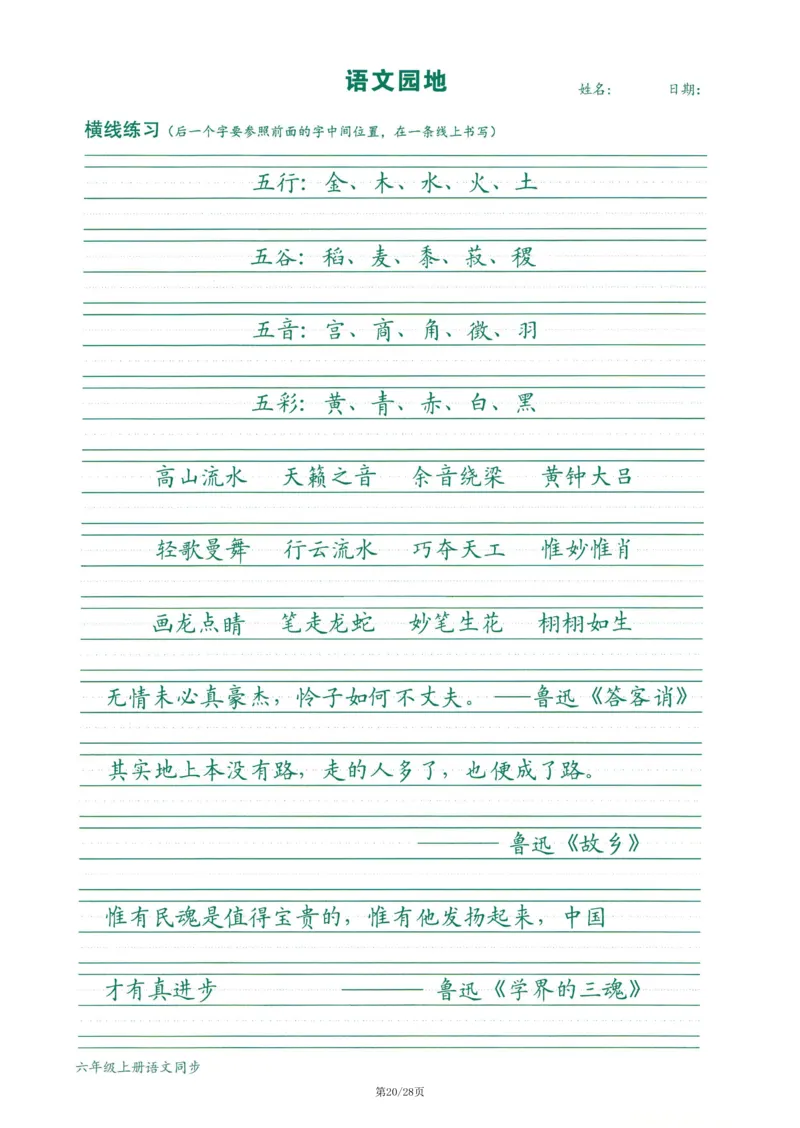 语文园地
姓名： 日期：
横线练习（后一个字要参照前面的字中间位置，在一条线上书写）
五行：金、木、水、火、土
五谷：稻、麦、黍、菽、稷
五音：宫、商、角、徵、羽
五彩：黄、青、赤、白、黑
高山流水 天籁之音 余音绕梁 黄钟大吕
轻歌曼舞 行云流水 巧夺天工 惟妙惟肖
画龙点睛 笔走龙蛇 妙笔生花 栩栩如生
无情未必真豪杰，怜子如何不丈夫。 ——鲁迅《答客诮》
其实地上本没有路，走的人多了，也便成了路。
——— 鲁迅《故乡》
惟有民魂是值得宝贵的，惟有他发扬起来，中国
才有真进步 ——— 鲁迅《学界的三魂》
六年级上册语文同步
第20/28页